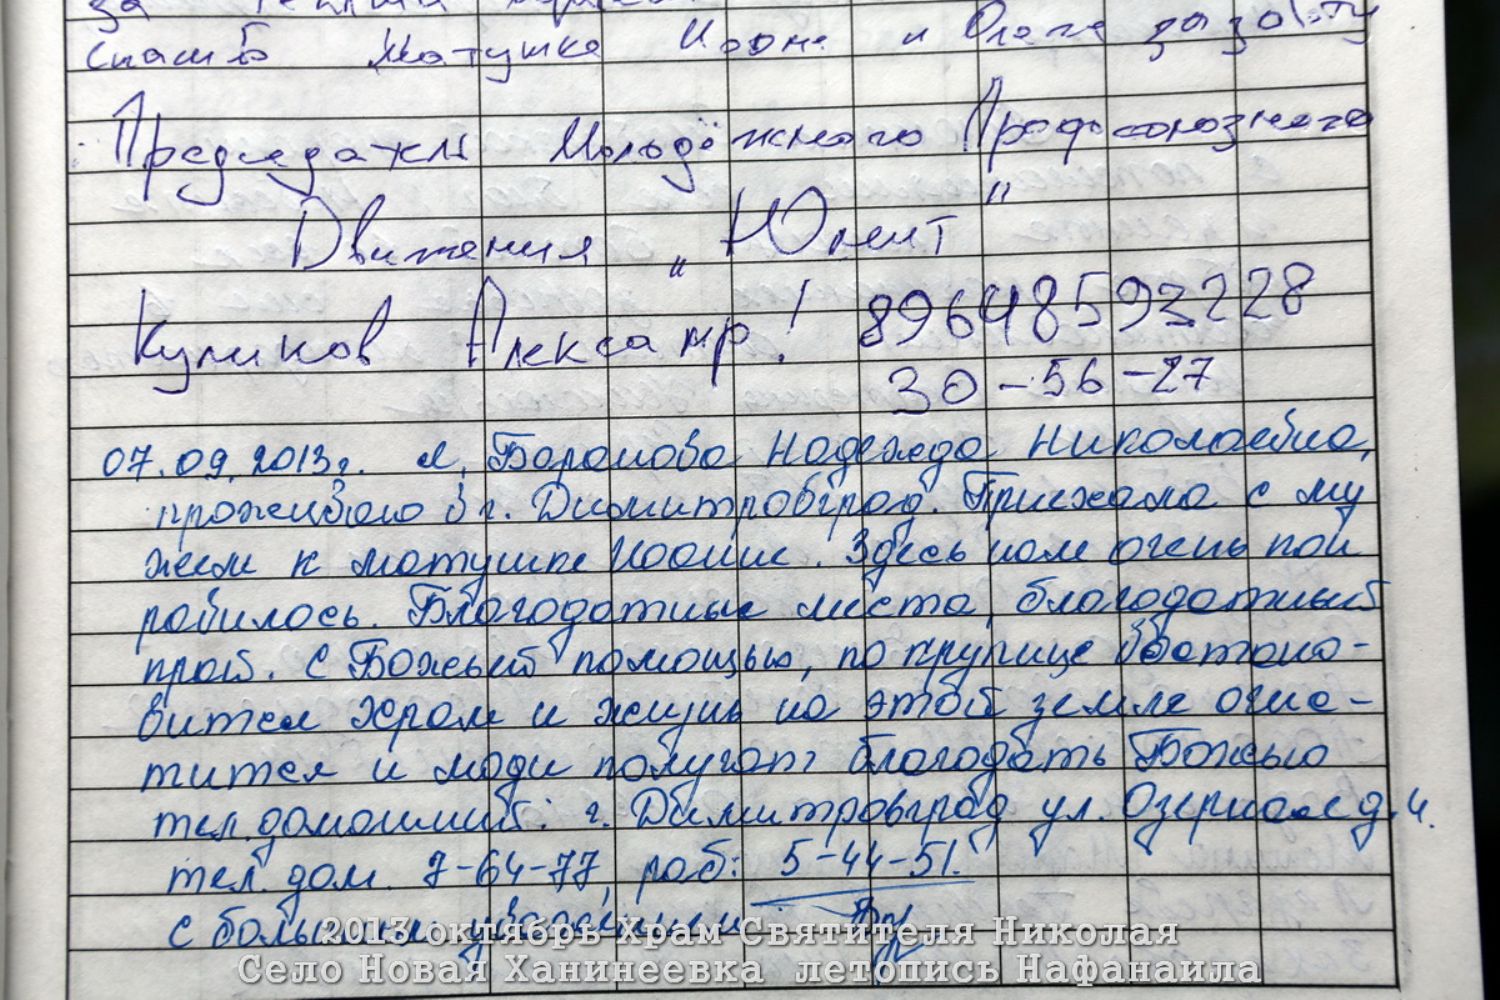 за теплый
спасибо Матушка Иоана и Олега за заботу
Председатель Молодёжного Профсоюзного
Движения „Юнит"
Куликов Александр! 89648593228
30-56-27
07.09.2013г. Я, Баранова Надежда Николаевна,
проживаю в г. Димитровград. Приехала с му
жем к матушке Иоанне. Здесь нам очень пон
равилось. Благодатные места, благодатный
край. С Божьей помощью, по крупице восстано-
вится Храм и жизнь на этой земле очис-
тится и люди получат благодать Божью
тел.домашний: г. Димитровград ул. Озерная д.4.
тел. дом. 7-64-77, раб: 5-44-51.
с большим уважением
2013 октябрь Храм Святителя Николая
Село Новая Ханинеевка летопись Нафанаила